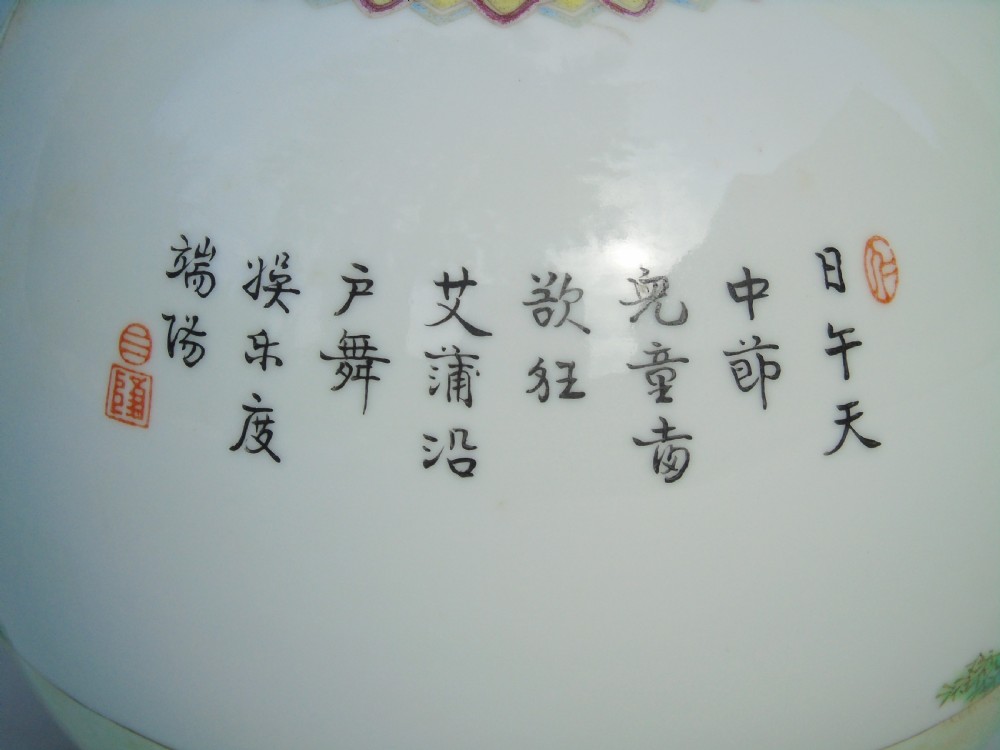 日午天
中節
兒童㐭
欲狂
艾蒲沿
户舞
娛乐度
端陽